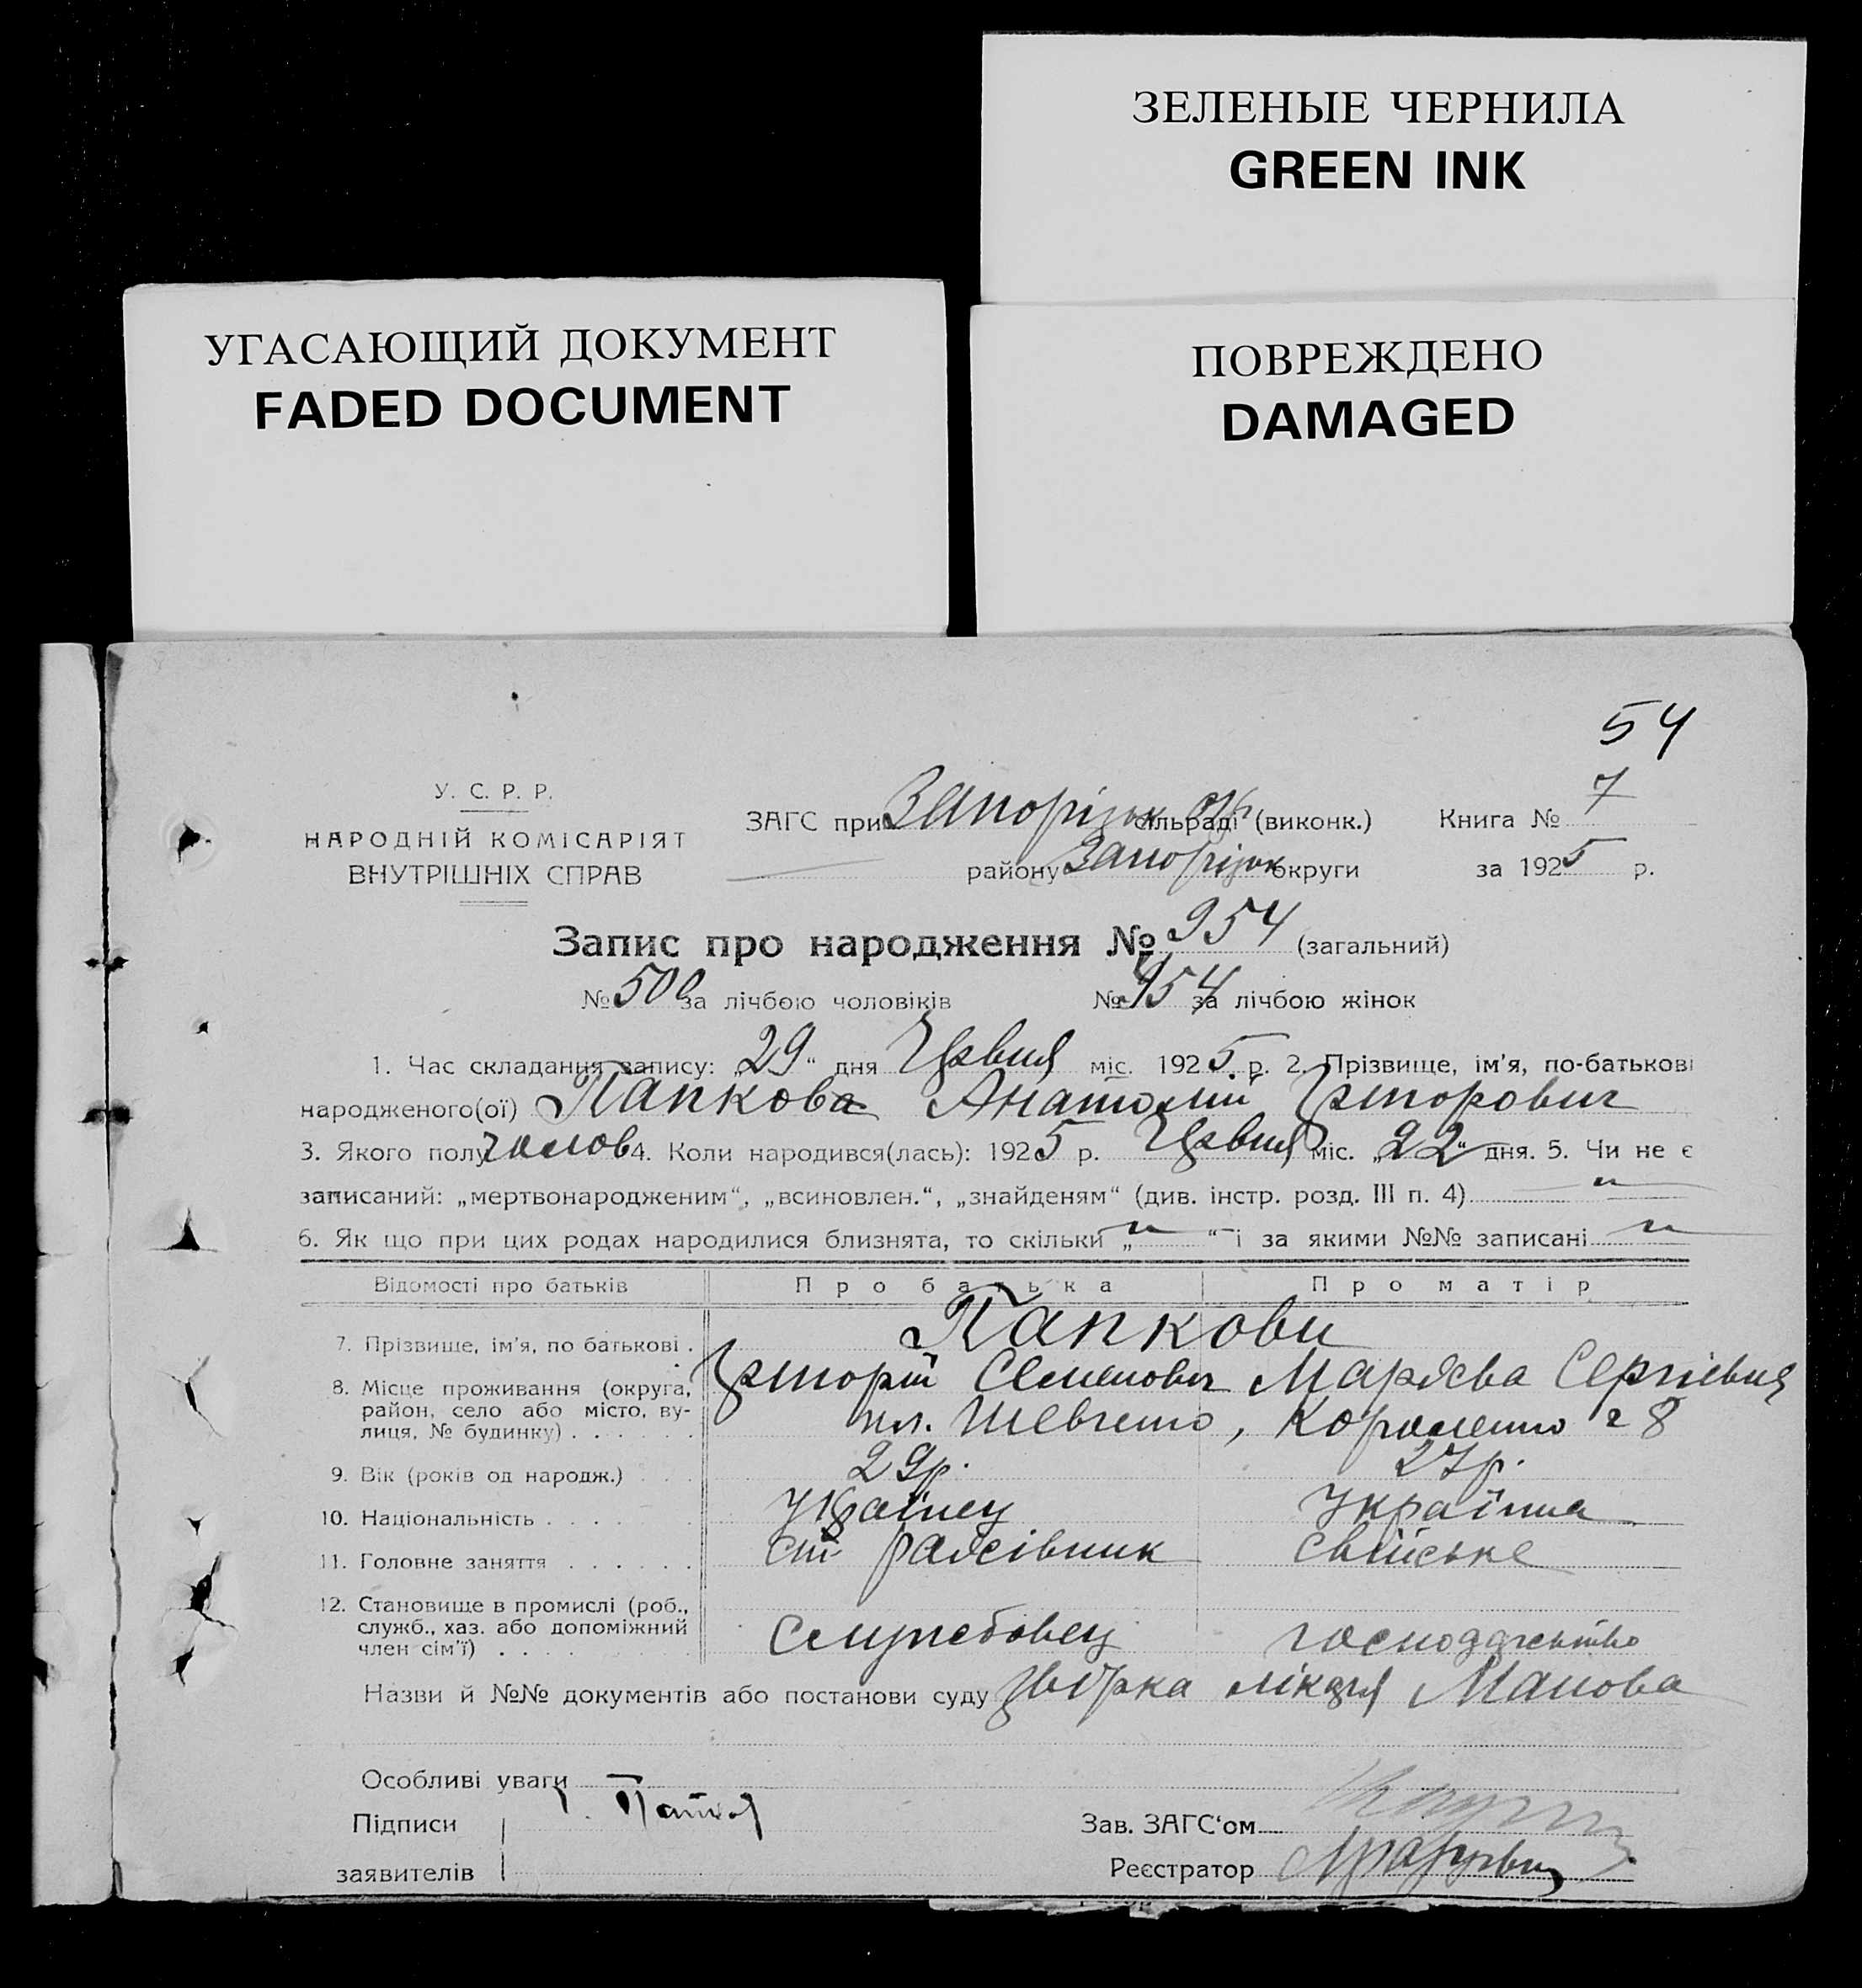 ЗЕЛЕНЫЕ ЧЕРНИЛА
GREEN INK
УГАСАЮЩИЙ ДОКУМЕНТ
FADED DOCUMENT
ПОВРЕЖДЕНО
DAMAGED
54
У. С. Р. Р.
НАРОДНІЙ КОМІСАРІЯТ
ВНУТРІШНІХ СПРАВ
ЗАГС при Запорізьк сільраді (виконк.) Книга № 7
району Запорізьк округи за 1925 р.
Запис про народження № 954 (загальний)
№ 500 за лічбою чоловіків № 454 за лічбою жінок
1. Час складання запису: „29“ дня Червня міс. 1925 р. 2. Прізвище, ім'я, по-батькові
народженого(ої) Папкова Анатолій Григорович
3. Якого полу чолов 4. Коли народився(лась): 1925 р. Червня міс. „22“ дня. 5. Чи не є
записаний: „мертвонародженим“, „всиновлен.“, „знайденям“ (див. інстр. розд. III п. 4) „
6. Як що при цих родах народилися близнята, то скільки „ “ і за якими №№ записані
Відомості про батьків Про батька Про матір
7. Прізвище, ім'я, по батькові . Папкови
Григорій Семенович Сергієвна
8. Місце проживання (округа, район, село або місто, вулиця, № будинку) . . . . . . Шевченко, 8
9. Вік (років од народж.) . . . 29р. 27р.
10. Національність . . . . Українець Українка
11. Головне заняття . . . . . . свійське
12. Становище в промислі (роб., служб., хаз. або допоміжний член сім'ї) . . . . Служебовець господарство
Назви й №№ документів або постанови суду лікаря
Особливі уваги
Підписи Зав. ЗАГС'ом
заявителів Реєстратор